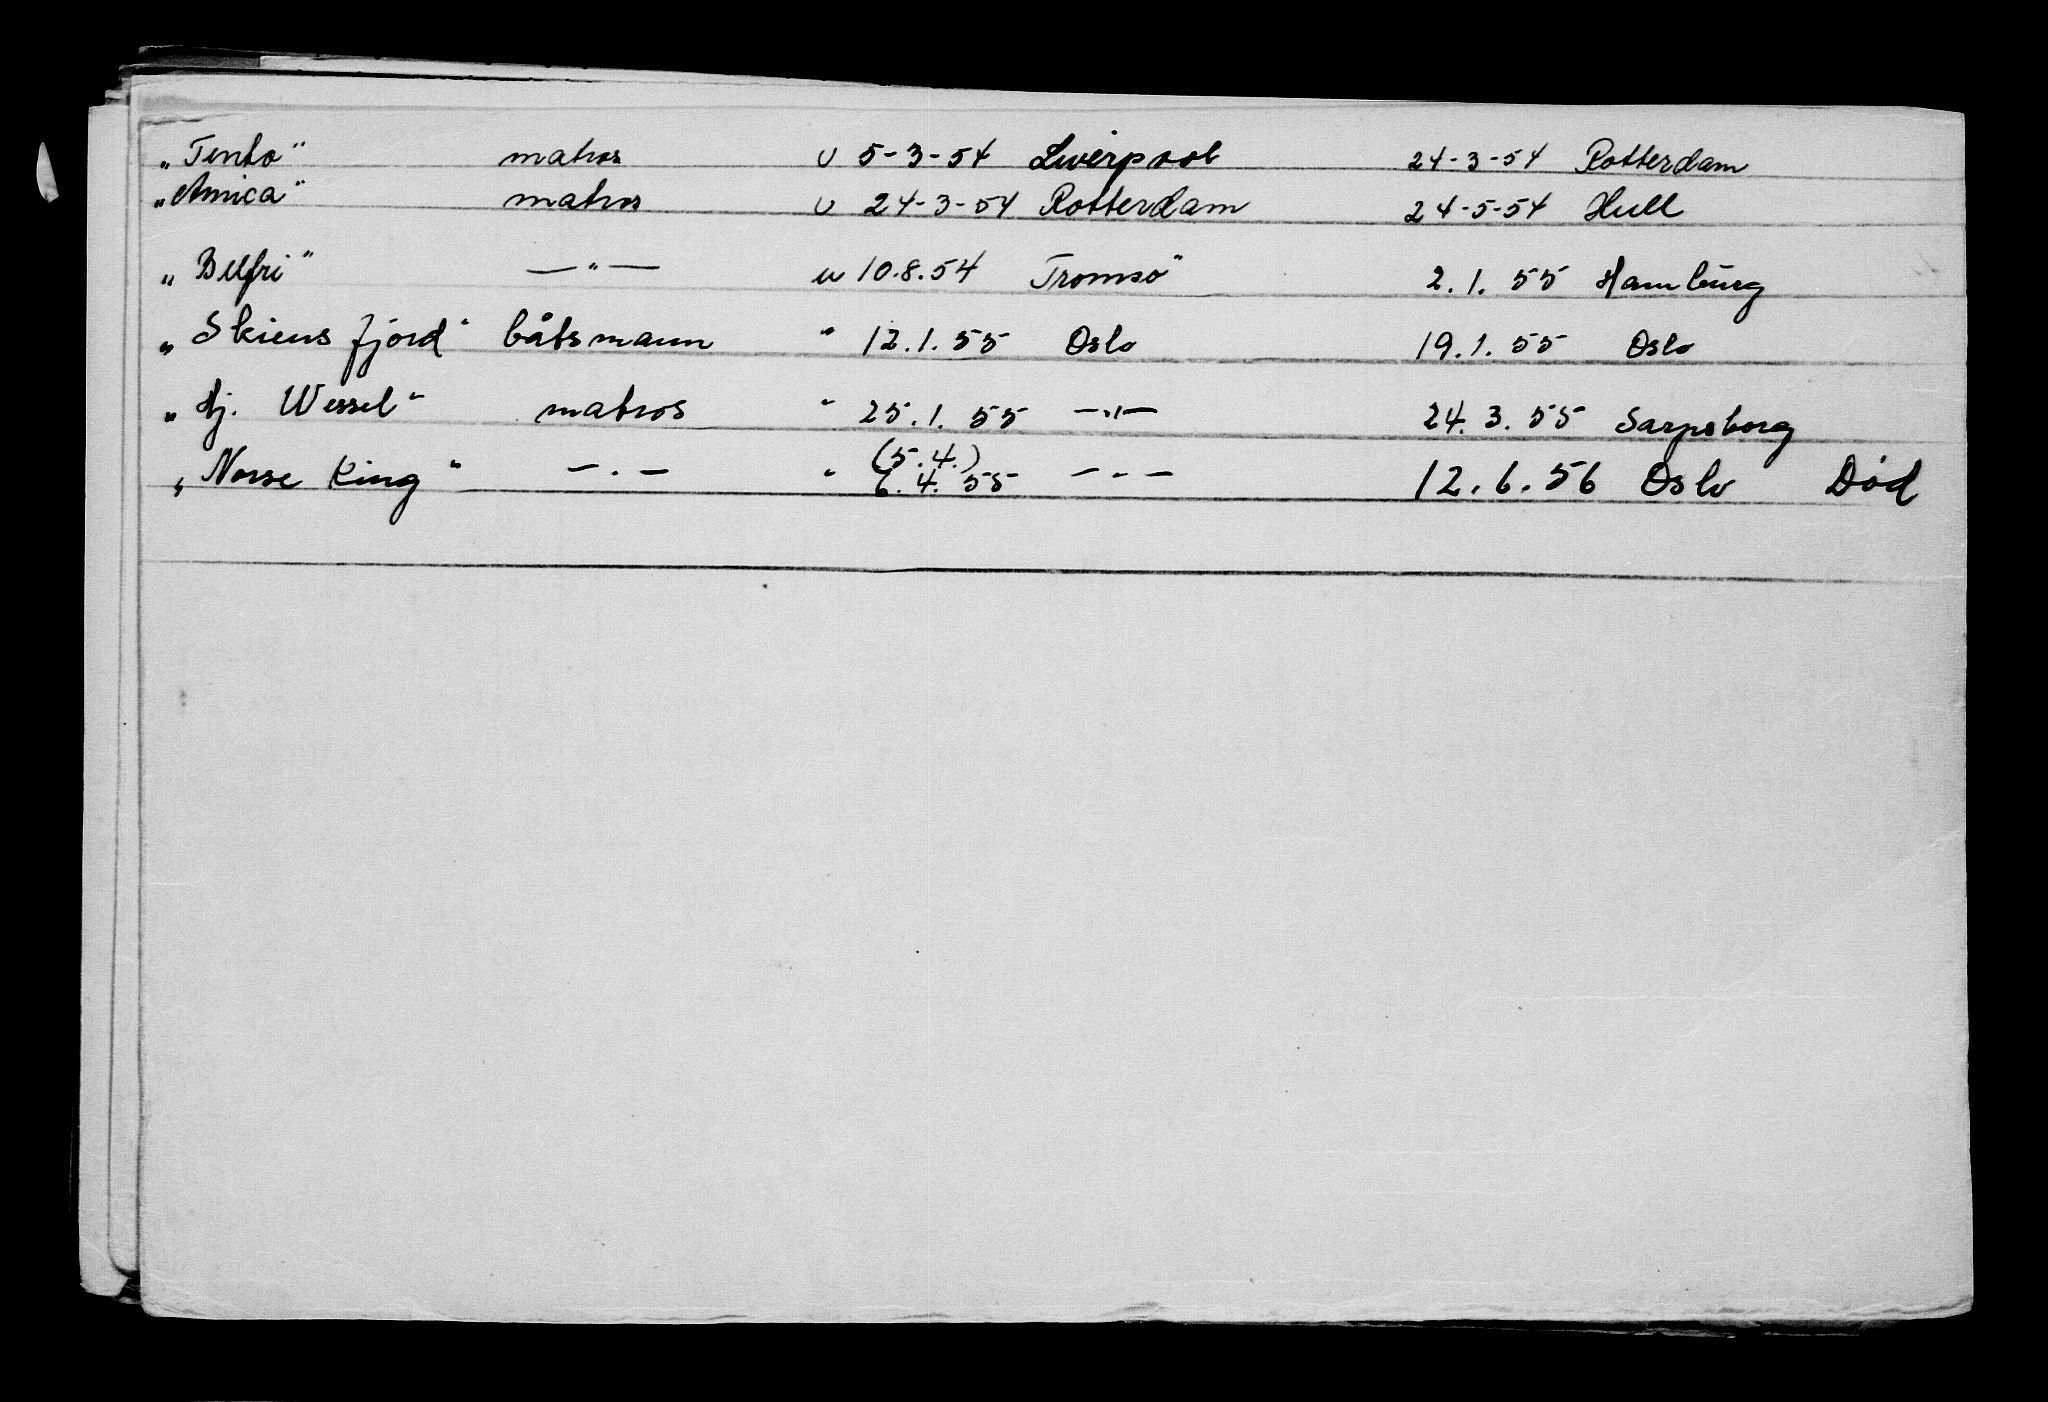 „Tento" matros u 5-3-54 Liverpool 24-3-54 Rotterdam
„Amica" matros u 24-3-54 Rotterdam 24-5-54 Hull
„Belfri" —"— u 10.8.54 Tromsö 2.1.55 Hamburg
„Skiensfjord" båtsmann " 12.1.55 Oslo 19.1.55 Oslo
„Hj. Wessel" matros " 25.1.55 —"— 24.3.55 Sarpsborg
(5.4.)
„Norse King" —"— " 6.4.55 —"— 12.6.56 Oslo Død